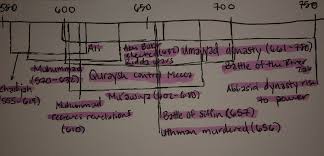 580 600 650 700 750
Ali
Abu Bakr
elected (632)
Ridda wars
Umayyad dynasty (661-750)
Muhammad
(570-632)
Quraysh control Mecca
Battle of the River
Zab
Khadijah
(555-619)
Mu'awiya (602-680)
Abbasid dynasty rise
to power
Muhammad
receives revelations
(610)
Battle of Siffin (657)
Uthman murdered (656)